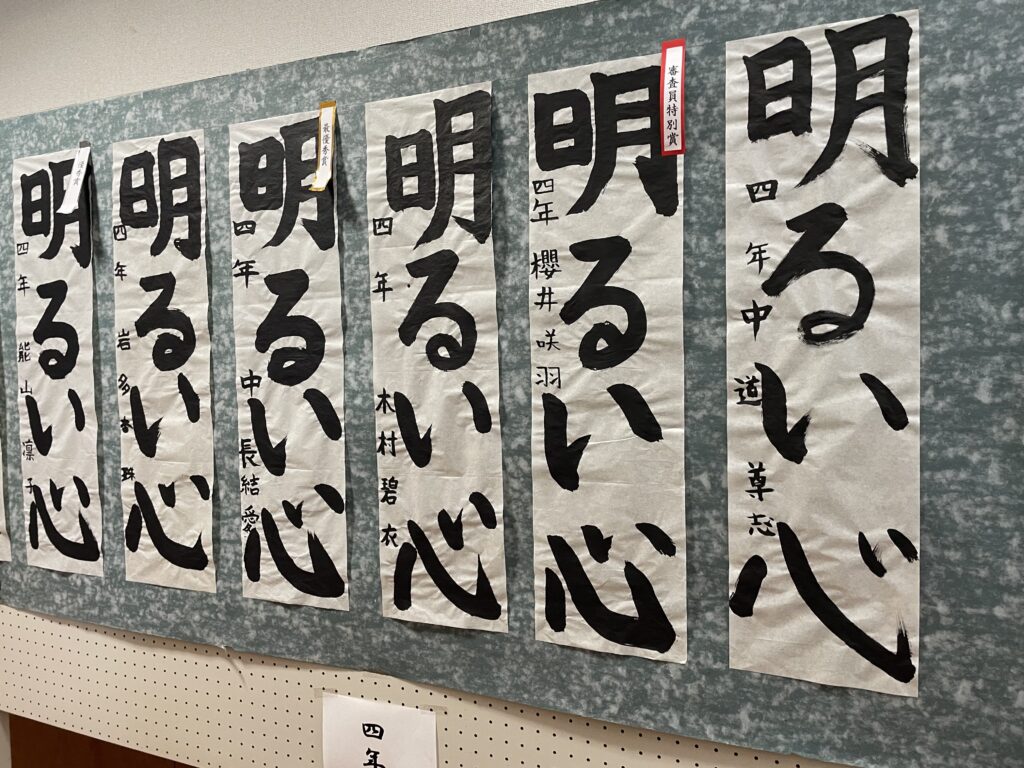 明るい心
四年 中道 尊志
審査員特別賞
明るい心
四年 櫻井咲羽
明るい心
四年 木村碧衣
最優秀賞
明るい心
四年 中長結愛
明るい心
四年 岩多本 珠
秀賞
明るい心
四年 能山 凛子
四年